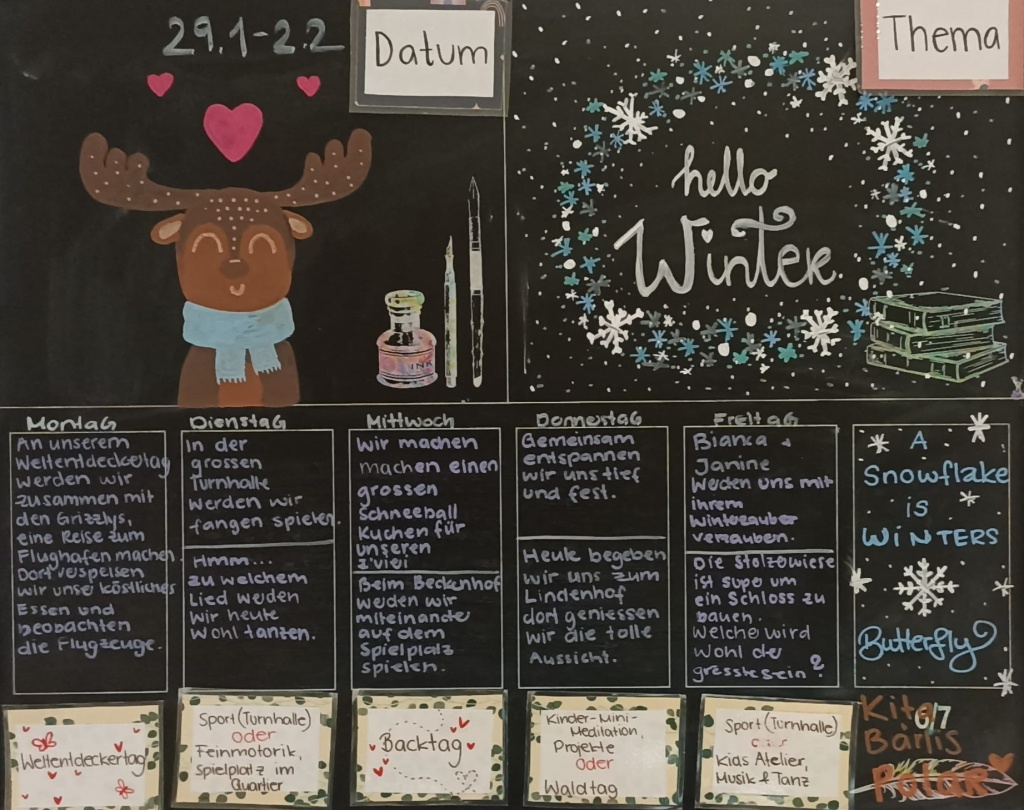 29.1-2.2
Datum
Thema
hello
Winter
INK
Montag
An unserem
Weltentdeckertag
werden wir
zusammen mit
den Grizzlys,
eine Reise zum
Flughafen machen.
Dort verspeisen
wir unser köstliches
Essen und
beobachten
die Flugzeuge.
Dienstag
In der
grossen
Turnhalle
werden wir
fangen spielen.
Hmm...
zu welchem
Lied werden
wir heute
wohl tanzen.
Mittwoch
Wir machen
machen einen
grossen
Schneeball
Kuchen für
unseren
z'vieri
Beim Beckenhof
werden wir
miteinander
auf dem
Spielplatz
spielen.
Donnerstag
Gemeinsam
entspannen
wir uns tief
und fest.
Heute begeben
wir uns zum
Lindenhof
dort geniessen
wir die tolle
Aussicht.
Freitag
Bianca +
Janine
werden uns mit
ihrem
Winterzauber
verzaubern.
Die Stolzewiese
ist supe um
ein Schloss zu
bauen.
Welche wird
wohl der
grösste sein?
A
Snowflake
is
WINTERS
Butterfly
Weltentdeckertag
Sport (Turnhalle)
oder
Feinmotorik,
Spielplatz im
Quartier
Backtag
Kinder-Mini-
Meditation,
Projekte
Oder
Waldtag
Sport (Turnhalle)
Kids Atelier,
Musik & Tanz
Kita
Bärlis
Polar